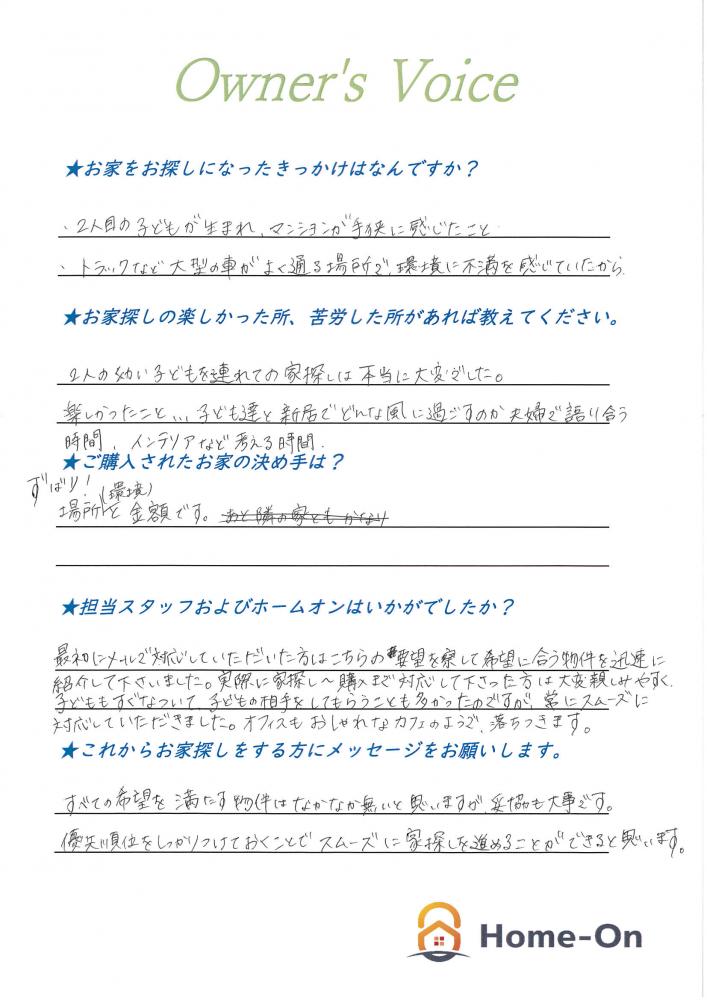 Owner's Voice
★お家をお探しになったきっかけはなんですか？
・2人目の子どもが生まれ、マンションが手狭に感じたこと
・トラックなど大型の車がよく通る場所で、環境に不満を感じていたから
★お家探しの楽しかった所、苦労した所があれば教えてください。
2人の幼い子どもを連れての家探しは本当に大変でした。
楽しかったこと… 子ども達と新居でどんな風に過ごすのか夫婦で語り合う
時間、インテリアなど考える時間.
★ご購入されたお家の決め手は？
ずばり！
(環境)
場所と金額です。あと隣の家とも かなり
★担当スタッフおよびホームオンはいかがでしたか？
最初にメールで対応していただいた方はこちらの要望を察して希望に合う物件を迅速に
紹介して下さいました。実際に家探し～購入まで対応して下さった方は大変親しみやすく、
子どももすぐなついて、子どもの相手をしてもらうことも多かったのですが、常にスムーズに
対応していただきました。オフィスもおしゃれなカフェのようで、落ちつきます。
★これからお家探しをする方にメッセージをお願いします。
すべての希望を満たす物件はなかなか無いと思いますが、妥協も大事です。
優先順位をしっかりつけておくことでスムーズに家探しを進めることができると思います。
Home-On